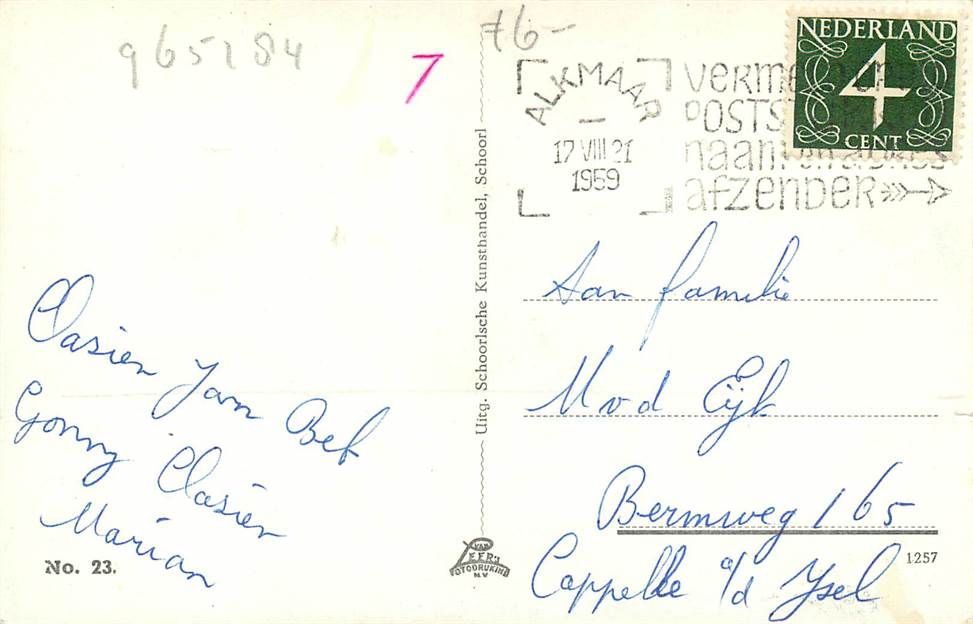 965284
76-
7
NEDERLAND
4
CENT
ALKMAAR
17 VIII 21
1959
POSTS
afzender
Clasien Jan Bep
Gonny Clasien
Marian
No. 23.
Uitg. Schoorlsche Kunsthandel, Schoorl
VAN LEER'S
FOTODRUKIND.
N.V.
Aan familie
M v d Eijk
Bermweg 165
Cappelle a/d Ysel
1257